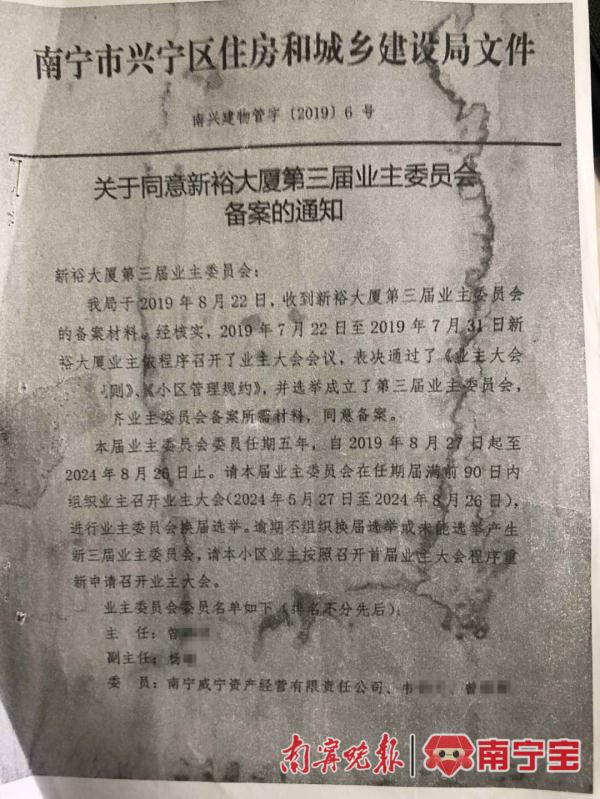 南宁市兴宁区住房和城乡建设局文件
南兴建物管字〔2019〕6号
关于同意新裕大厦第三届业主委员会
备案的通知
新裕大厦第三届业主委员会：
我局于2019年8月22日，收到新裕大厦第三届业主委员会
的备案材料。经核实，2019年7月22日至2019年7月31日新
裕大厦业主依程序召开了业主大会会议，表决通过了《业主大会
则》、《小区管理规约》，并选举成立了第三届业主委员会，
齐业主委员会备案所需材料，同意备案。
本届业主委员会委员任期五年，自2019年8月27日起至
2024年8月26日止。请本届业主委员会在任期届满前90日内
组织业主召开业主大会（2024年5月27日至2024年8月26日），
进行业主委员会换届选举。逾期不组织换届选举或未能选举产生
新三届业主委员会，请本小区业主按照召开首届业主大会程序重
新申请召开业主大会。
业主委员会委员名单如下（排名不分先后）：
主 任：曾
副主任：杨
委 员：南宁威宁资产经营有限责任公司、韦 、曾
南宁晚报 南宁宝